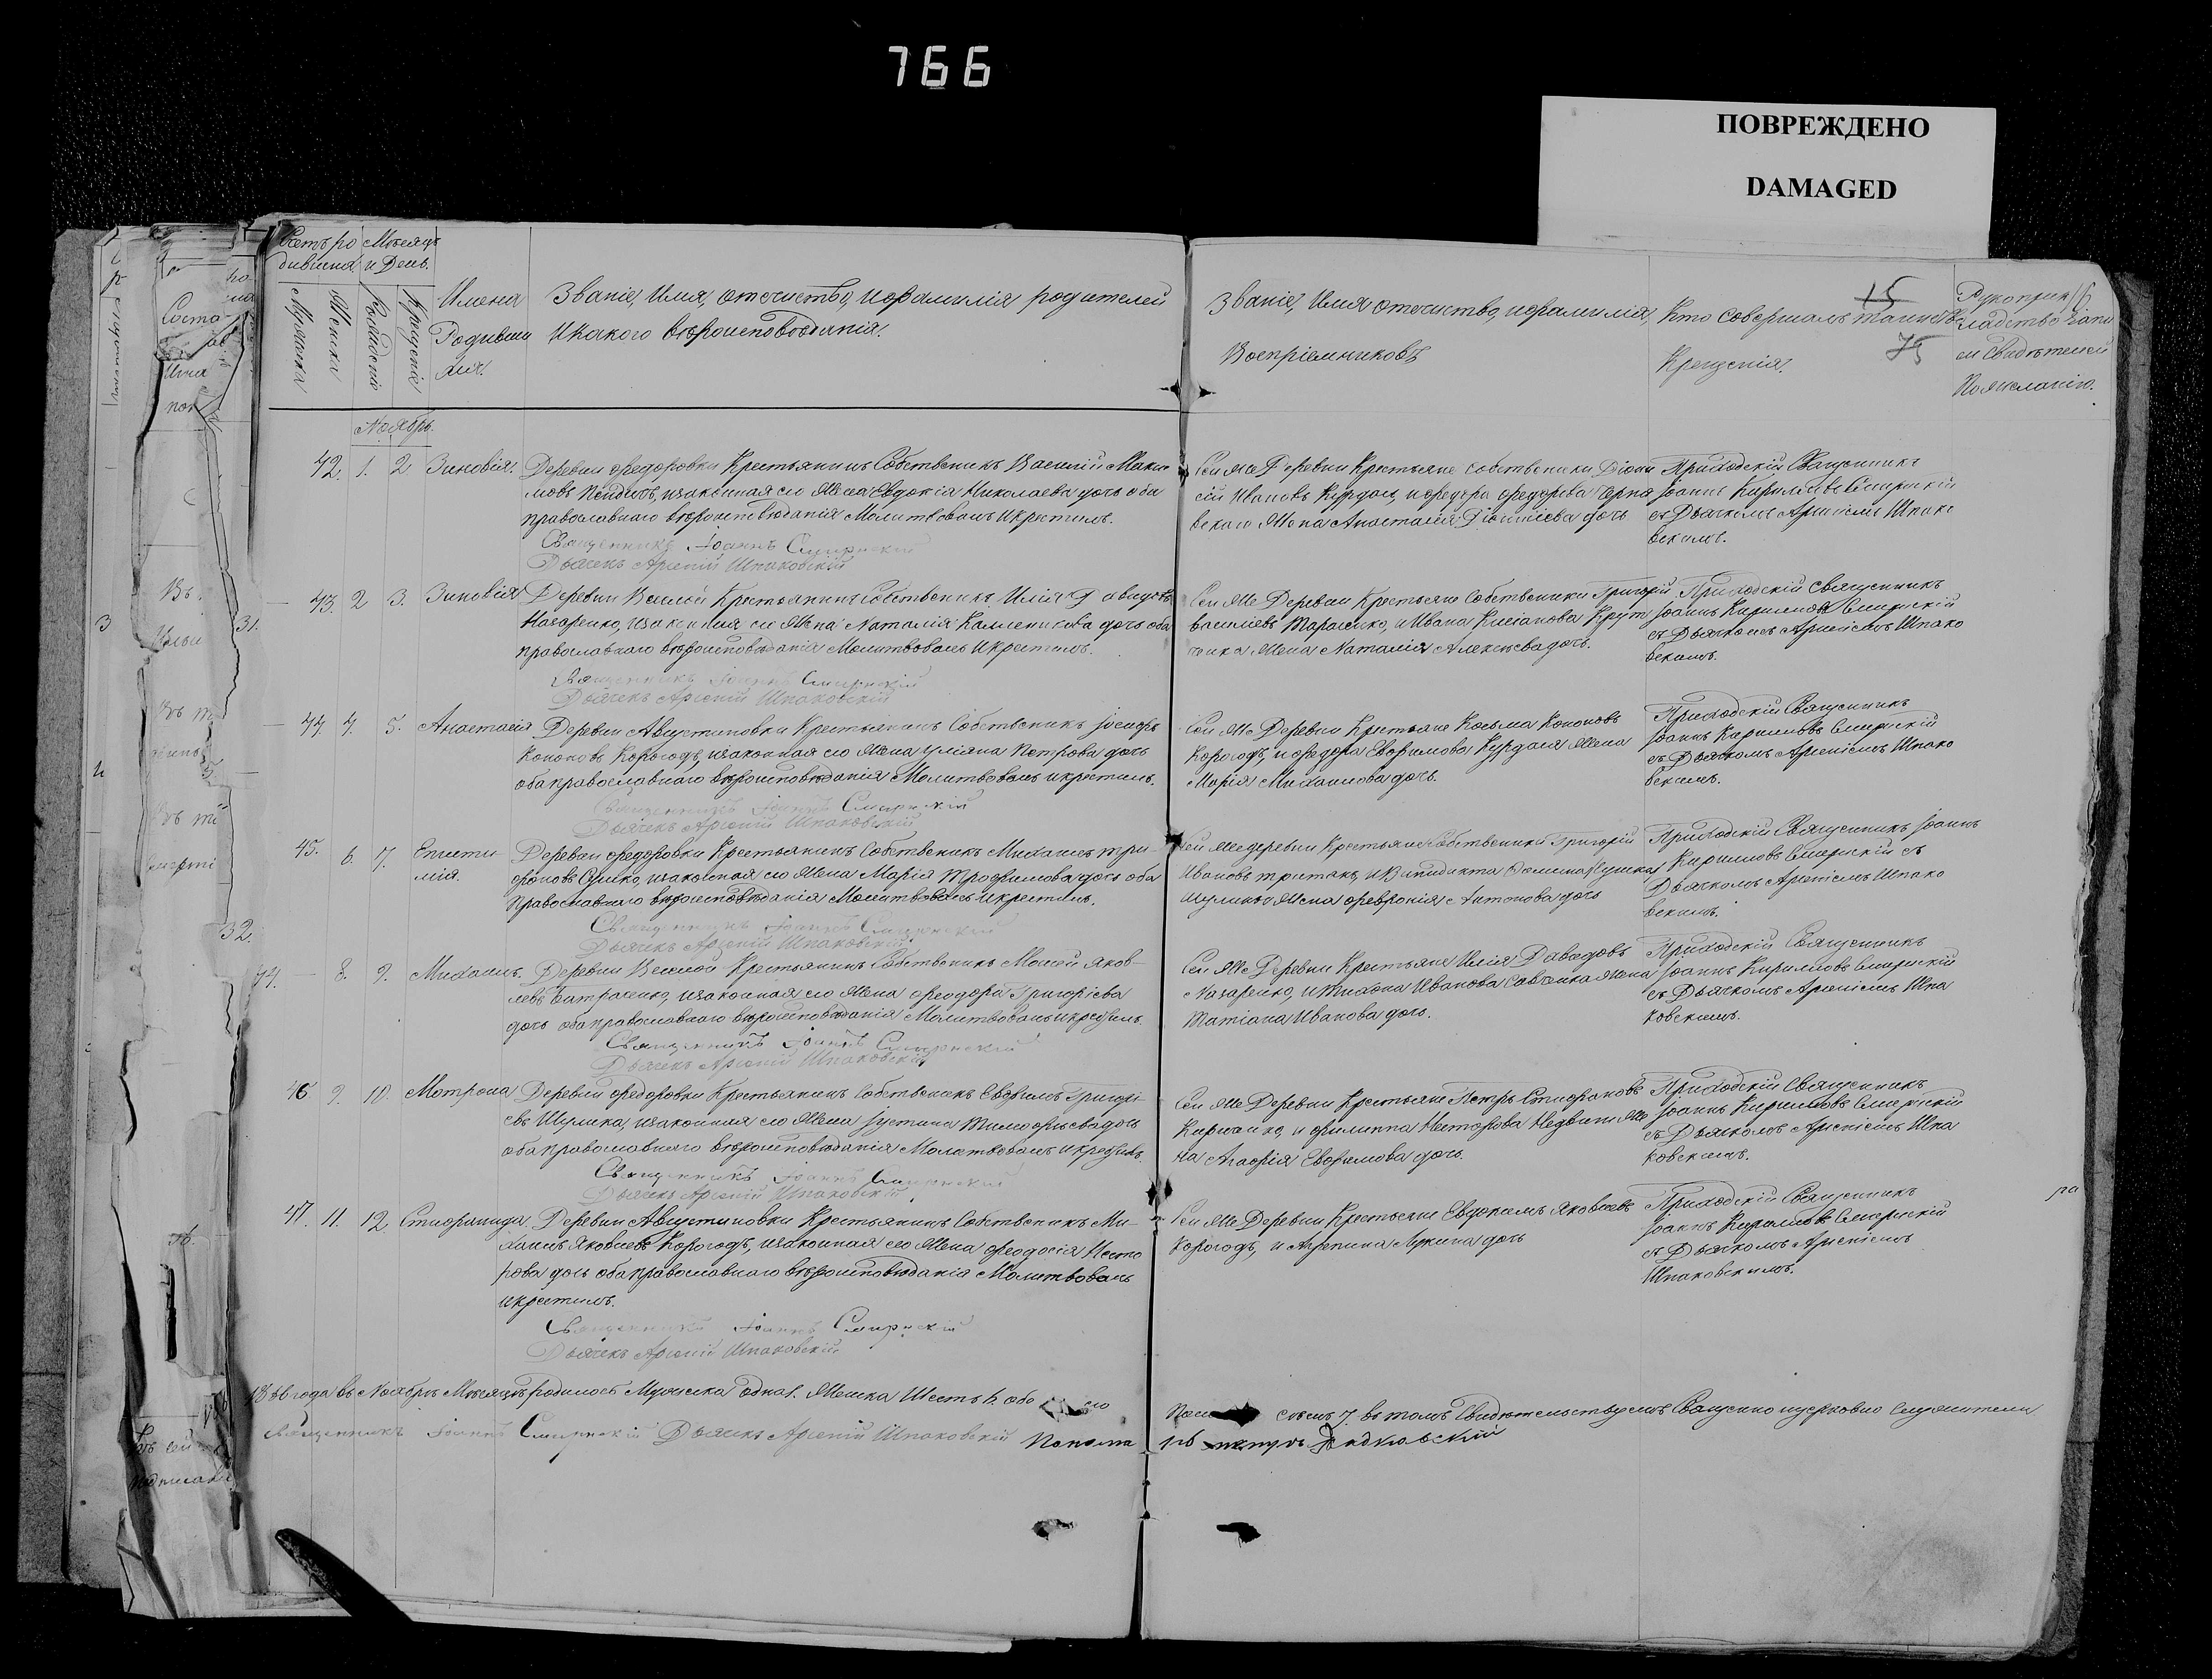 766
ПОВРЕЖДЕНО
DAMAGED
15
16
75
Счетъ ро
дившихся
Мѣсяцъ
и День.
Мужеска
Женска
Рожденіе
Крещеніе
Имена
Родивши
хся.
Званіе, Имя, отечество, и фамилія родителей
и какого вѣроисповѣданія.
Званіе, Имя отечество, и фамилія,
Воспріемниковъ
Кто совершалъ таинство
Крещенія.
Рукоприк
ладство запи
си свидѣтелей
По желанію.
Ноябрь.
42. 1. 2 Зиновія. Деревни Федоровки Крестьянинъ Собственникъ Василій Макси
мовъ и законная его Жена Евдокія Николаева дочь оба
православнаго вѣроисповѣданія Молитвовалъ и крестилъ.
Священникъ Іоаннъ Смирнскій
Дьячекъ Арсеній Шпаковскій
Сей же Деревни Крестьяне собственники Діони
сій Ивановъ Курдась, и Федора Федорова Черня
вскаго Жена Анастасія Діонисіева дочь
Приходскій Священникъ
Іоаннъ Кириловъ Смирнскій
съ Дьячкомъ Арсеніемъ Шпако
вскимъ.
43. 2 3. Зиновія Деревни Веселой Крестьянинъ Собственникъ Илія Давидовъ
Назаренко, и законная его Жена Наталія Калленикова дочь оба
православнаго вѣроисповѣданія Молитвовалъ и крестилъ.
Священникъ Іоаннъ Смирнскій
Дьячекъ Арсеній Шпаковскій
Сей же Деревни Крестьяне Собственники Григорій
Василіевъ Тарасенко, и Ивана Касіанова
Жена Наталія Алексѣева дочь.
Приходскій священникъ
Іоаннъ Кириловъ Смирнскій
съ Дьячкомъ Арсеніемъ Шпако
вскимъ.
44. 4. 5. Анастасія Деревни Августиновки Крестьянинъ Собственникъ Іосифъ
Кононовъ Корогодъ, и законная его Жена Уліяна Петрова дочь
оба православнаго вѣроисповѣданія Молитвовалъ и крестилъ.
Священникъ Іоаннъ Смирнскій
Дьячекъ Арсеній Шпаковскій
Сей же Деревни Крестьяне Косьма Кононовъ
Корогодъ, и Федора Евфимова Курдася Жена
Марія Михаилова дочь.
Приходскій Священникъ
Іоаннъ Кириловъ Смирнскій
съ Дьячкомъ Арсеніемъ Шпако
вскимъ.
45. 6. 7. Еписти
мія.
Деревни Федоровки Крестьянинъ Собственникъ Михаилъ Три
фоновъ и законная его Жена Марія Трофимова дочь оба
Православнаго вѣроисповѣданія Молитвовалъ и крестилъ.
Священникъ Іоаннъ Смирнскій
Дьячекъ Арсеній Шпаковскій
Сей же деревни Крестьяне Собственники Григорій
Ивановъ
Жена Февронія Антонова дочь
Приходскій Священникъ Іоаннъ
Кириловъ Смирнскій съ
Дьячкомъ Арсеніемъ Шпако
вскимъ.
8. 9. Михаилъ. Деревни Веселой Крестьянинъ Собственникъ Мосей Яков
левъ Батраченко, и законная его Жена Феодора Григоріева
дочь оба православнаго вѣроисповѣданія Молитвовалъ и крестилъ.
Священникъ Іоаннъ Смирнскій
Дьячекъ Арсеній Шпаковскій
Сей же Деревни Крестьяне Илія Давидовъ
Назаренко, и Тихона Иванова Савченка Жена
Татіана Иванова дочь.
Приходскій Священникъ
Іоаннъ Кириловъ Смирнскій
съ Дьячкомъ Арсеніемъ Шпа
ковскимъ.
46. 9. 10. Мотрона Деревни Федоровки Крестьянинъ Собственникъ Евфимъ Григорі
евъ Шулика, и законная его Жена Іустина Тимофѣева дочь
оба православнаго вѣроисповѣданія Молитвовалъ и крестилъ.
Священникъ Іоаннъ Смирнскій
Дьячекъ Арсеній Шпаковскій
Сей же Деревни Крестьяне Петръ Стефановъ
и Филиппа Нестерова Же
на Агафія Евфимова дочь.
Приходскій Священникъ
Іоаннъ Кириловъ Смирнскій
съ Дьячкомъ Арсеніемъ Шпа
ковскимъ.
47. 11. 12. Стефанида. Деревни Августиновки Крестьянинъ Собственникъ Ми
хаилъ Яковлевъ Корогодъ, и законная его Жена Феодосія Несте
рова дочь оба православнаго вѣроисповѣданія Молитвовалъ
и крестилъ.
Священникъ Іоаннъ Смирнскій
Дьячекъ Арсеній Шпаковскій
Сей же Деревни Крестьяне Евдокимъ Яковлевъ
Корогодъ, и Агрепина Лукина дочь
Приходскій Священникъ
Іоаннъ Кириловъ Смирнскій
съ Дьячкомъ Арсеніемъ
Шпаковскимъ.
1866 года въ Ноябрѣ Мѣсяцѣ родилось Мужеска одна 1. Женска Шесть 6. обо его
семь 7. въ томъ Свидѣтельствуемъ Священно и церковно служители
Священникъ Іоаннъ Смирнскій Дьячекъ Арсеній Шпаковскій
31.
32.